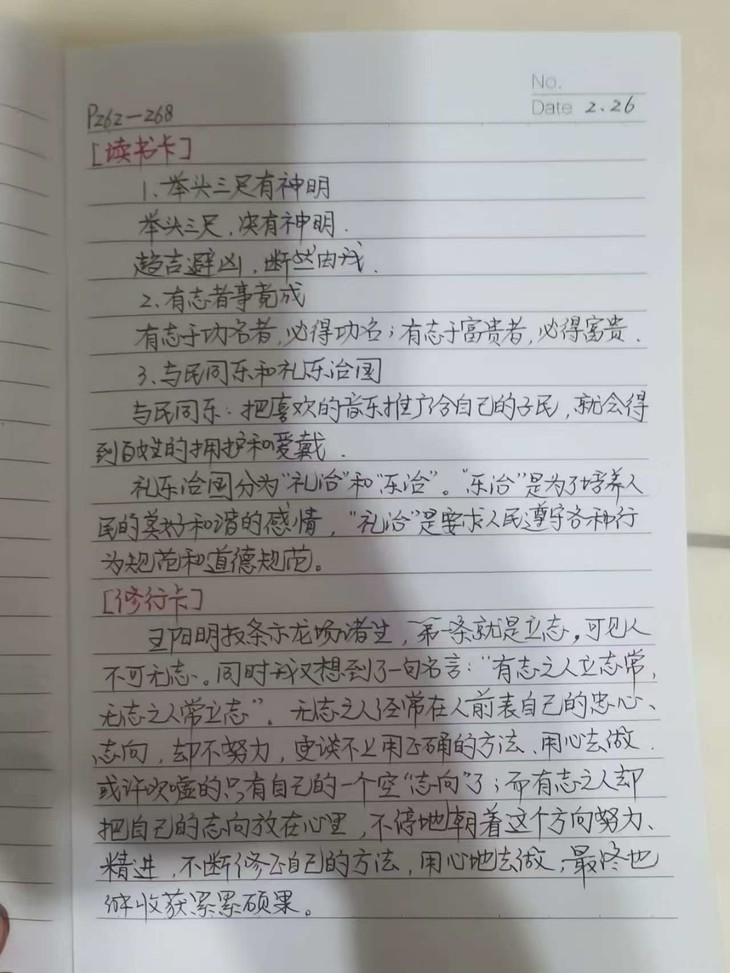 No.
P262—268
Date 2.26
[读书卡]
1、举头三尺有神明
举头三尺,决有神明.
趋吉避凶,断然由我.
2、有志者事竟成
有志于功名者,必得功名;有志于富贵者,必得富贵.
3、与民同乐和礼乐治国
与民同乐:把喜欢的音乐推广给自己的子民,就会得
到百姓的拥护和爱戴.
礼乐治国分为“礼治”和“乐治”。“乐治”是为了培养人
民的美好和谐的感情,“礼治”是要求人民遵守各种行
为规范和道德规范。
[修行卡]
王阳明教条示龙场诸生,第一条就是立志,可见人
不可无志。同时我又想到了一句名言:“有志之人立志常,
无志之人常立志”。无志之人经常在人前表自己的忠心、
志向,却不努力,更谈不上用正确的方法、用心去做.
或许吹嘘的只有自己的一个空“志向”了;而有志之人却
把自己的志向放在心里,不停地朝着这个方向努力、
精进,不断修正自己的方法,用心地去做,最终也
收获累累硕果。